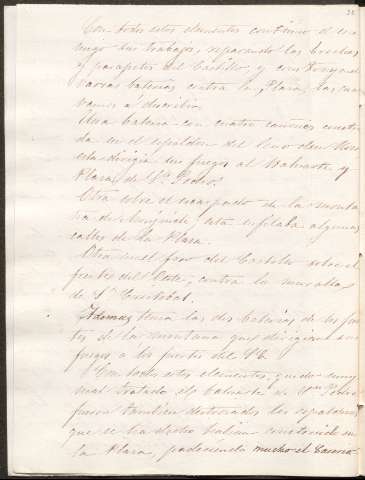 Con todos estos elementos continuó el ene
migo sus trabajos, reparando las brechas
y parapetos del Castillo, y construyendo
varias baterias contra la Plaza, las cua
vamos á describir.
Una bateria con cuatro cañones
da en el espaldon del
esta dirigia sus fuegos al Baluarte y
Plaza de Sn. Pedro.
Otra sobre el escarpado de la monta
ña de esta enfilaba algunas
calles de la Plaza.
Otra en el foso del Castillo sobre el
frente del Este, contra la muralla
de Sn. Cristobal.
Ademas tenia las dos baterias de los fuer
tes de la montaña que dirigian sus
fuegos á los fuertes del
Con todos estos elementos, quedó muy
mal tratado el baluarte de Sn. Pedro
fueron tambien destrozados los espaldones
que se habian construido en
la Plaza, padeciendo mucho el